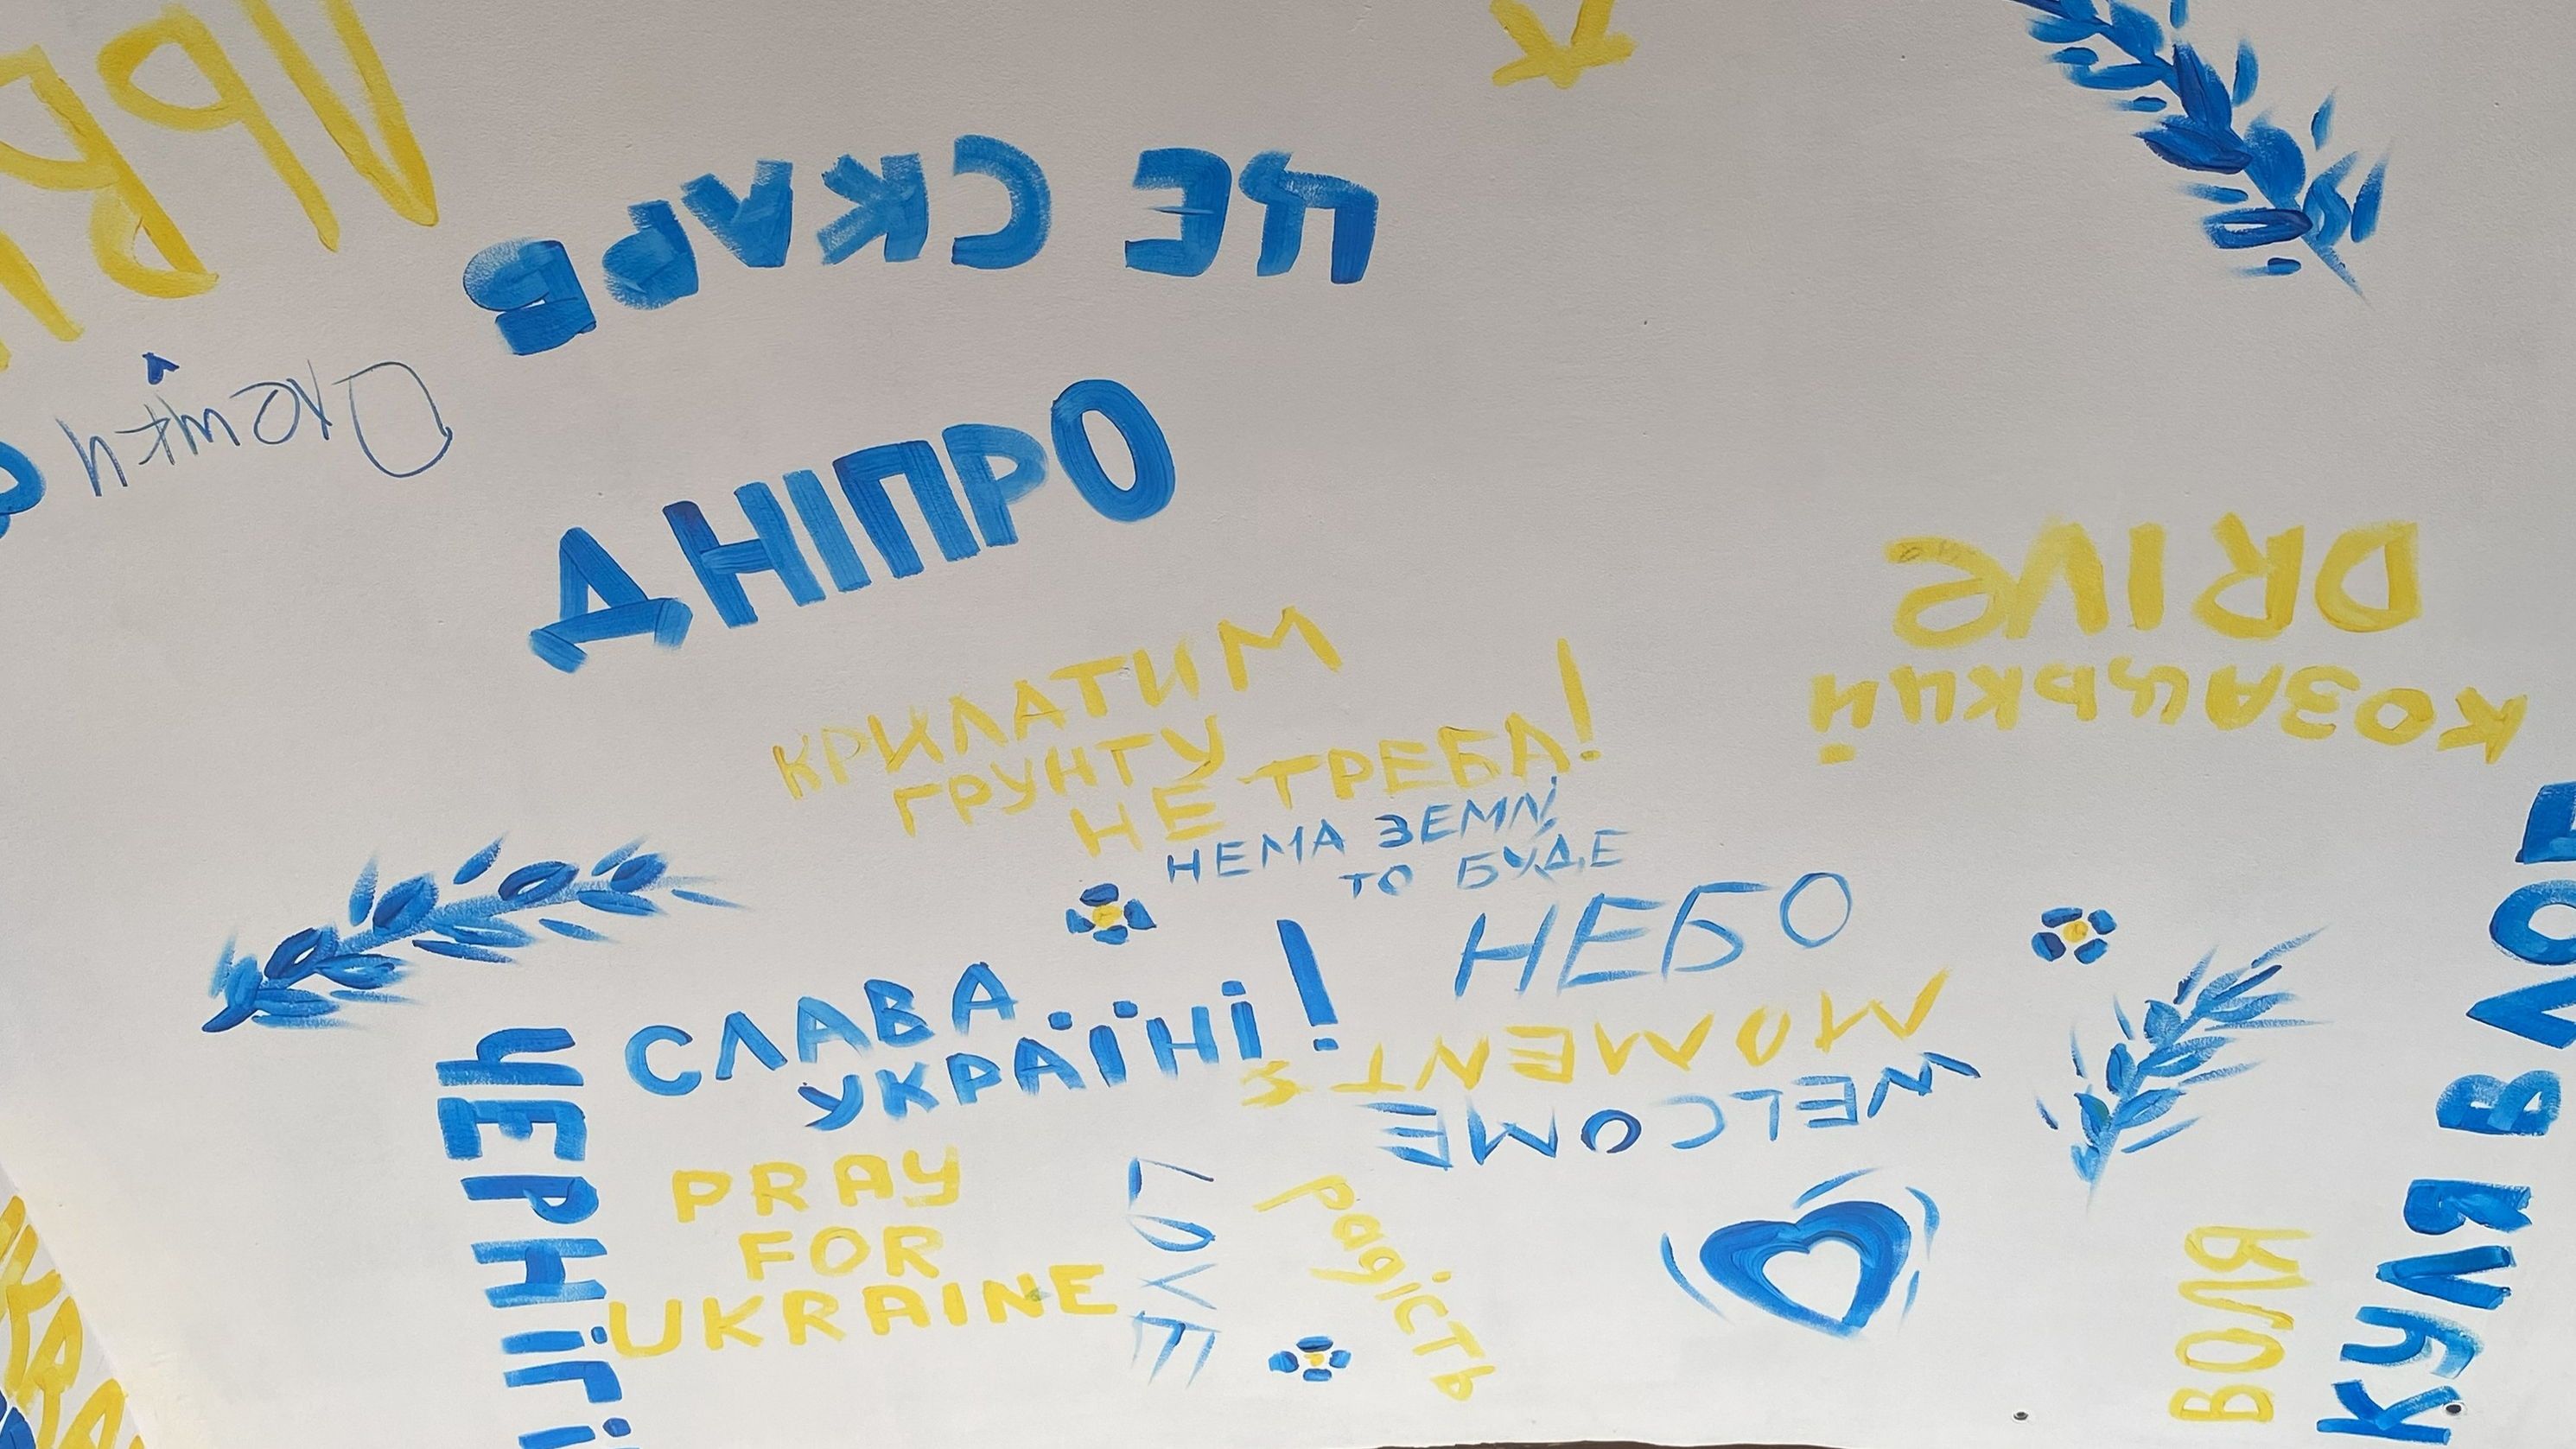 ЦЕ СКАРБ
Олешки
ДНІПРО
КОЗАЦЬКИЙ
DRIVE
КРИЛАТИМ
ГРУНТУ
НЕ ТРЕБА!
НЕМА ЗЕМЛІ,
ТО БУДЕ
НЕБО
СЛАВА
УКРАЇНІ!
WELCOME
MOMENT
ЧЕРНІГІ
PRAY
FOR
UKRAINE
LOVE
радість
ВОЛЯ
КУЛЯ В ЛОБ